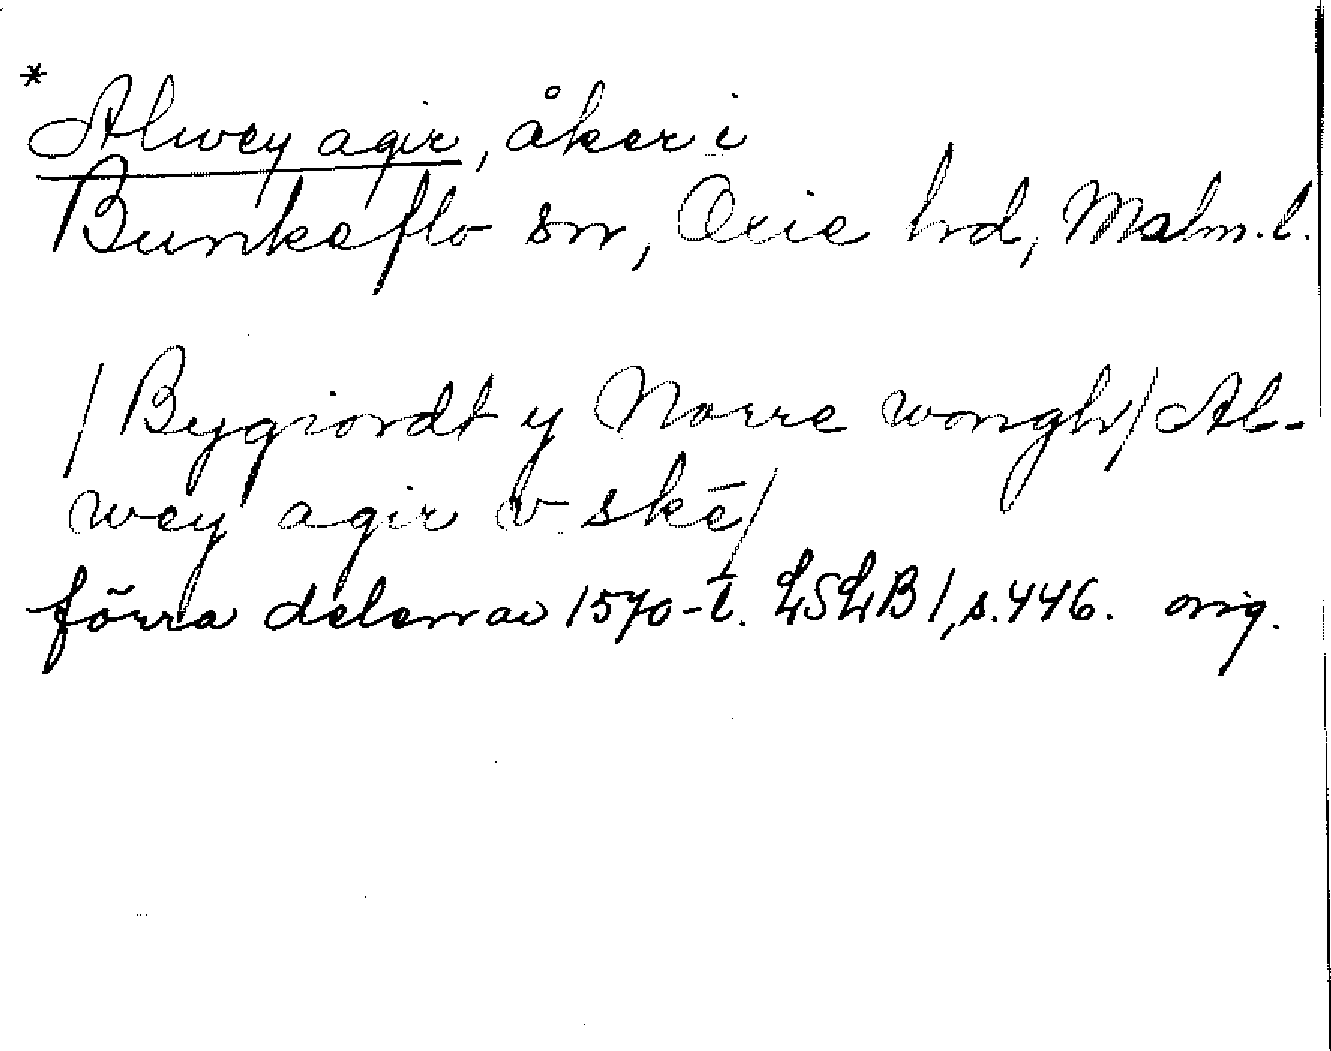 * Alwey agir, åker i
Bunkeflo sn, Oxie hd, Malm. l.
/Bygiordt y Norre wongh/ Al-
wey agir v skē/
förra delen av 1570-t. LSLB 1, s. 446. orig.